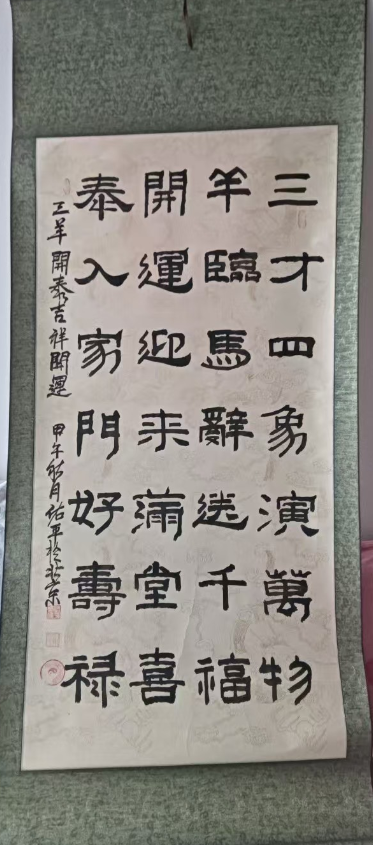 三才四象演萬物
羊臨馬辭送千福
開運迎来滿堂喜
泰入家門好壽禄
三羊開泰吉祥開運 甲午秋月 平於北京